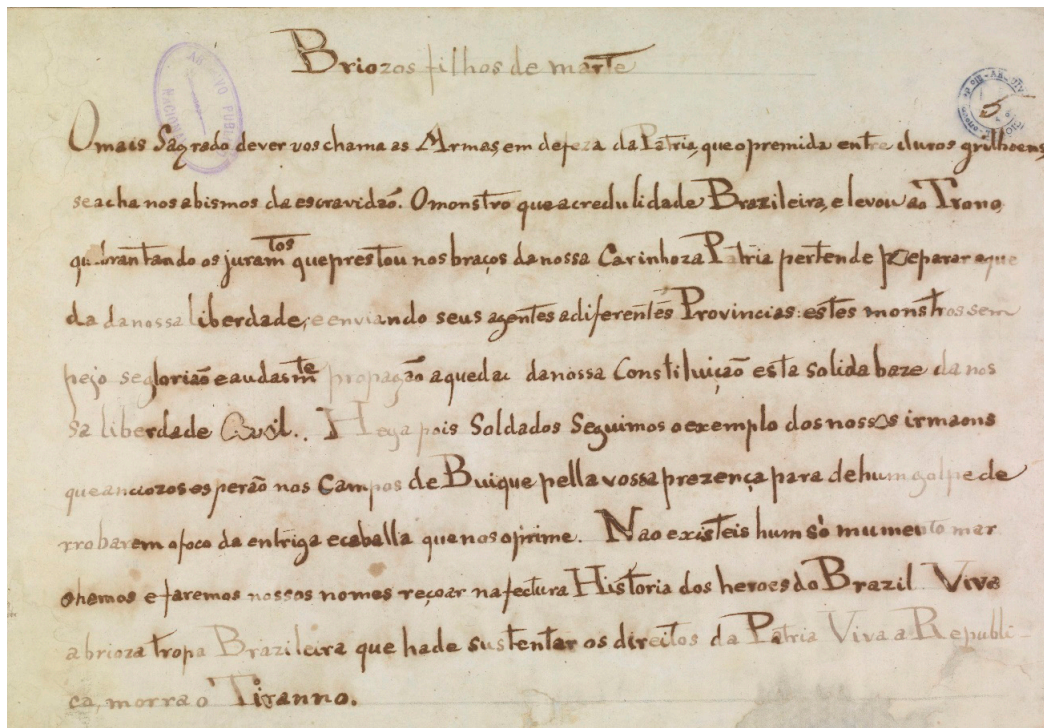 Briozos filhos de marte
O mais Sagrado dever vos chama as Armas, em defeza da Patria, que opremida entre duros grilhoens,
se acha nos abismos da escravidaõ. O monstro que a credulidade Brazileira, elevou ao Trono,
quebrantando os juram.tos que prestou nos braços da nossa Carinhoza Patria pertende preparar a que
da da nossa liberdade, e enviando seus agentes a diferentes Provincias: estes monstros sem
pejo se gloriaõ e audasm.te propagaõ a queda da nossa Constituiçaõ esta solida baze da nos
sa liberdade Civil.. Heya pois Soldados Seguimos o exemplo dos nossos irmaons
que anciozos esperaõ nos Campos de Buique pella vossa prezença para de hum golpe de
rrobarem o foco da entriga e caballa que nos oprime. Nao existeis hum só mumento mar
chemos e faremos nossos nomes reçoar na fectura Historia dos heroes do Brazil Viva
a brioza tropa Brazileira que hade sustentar os direitos da Patria Viva a Republi-
ca, morra o Tiranno.
5